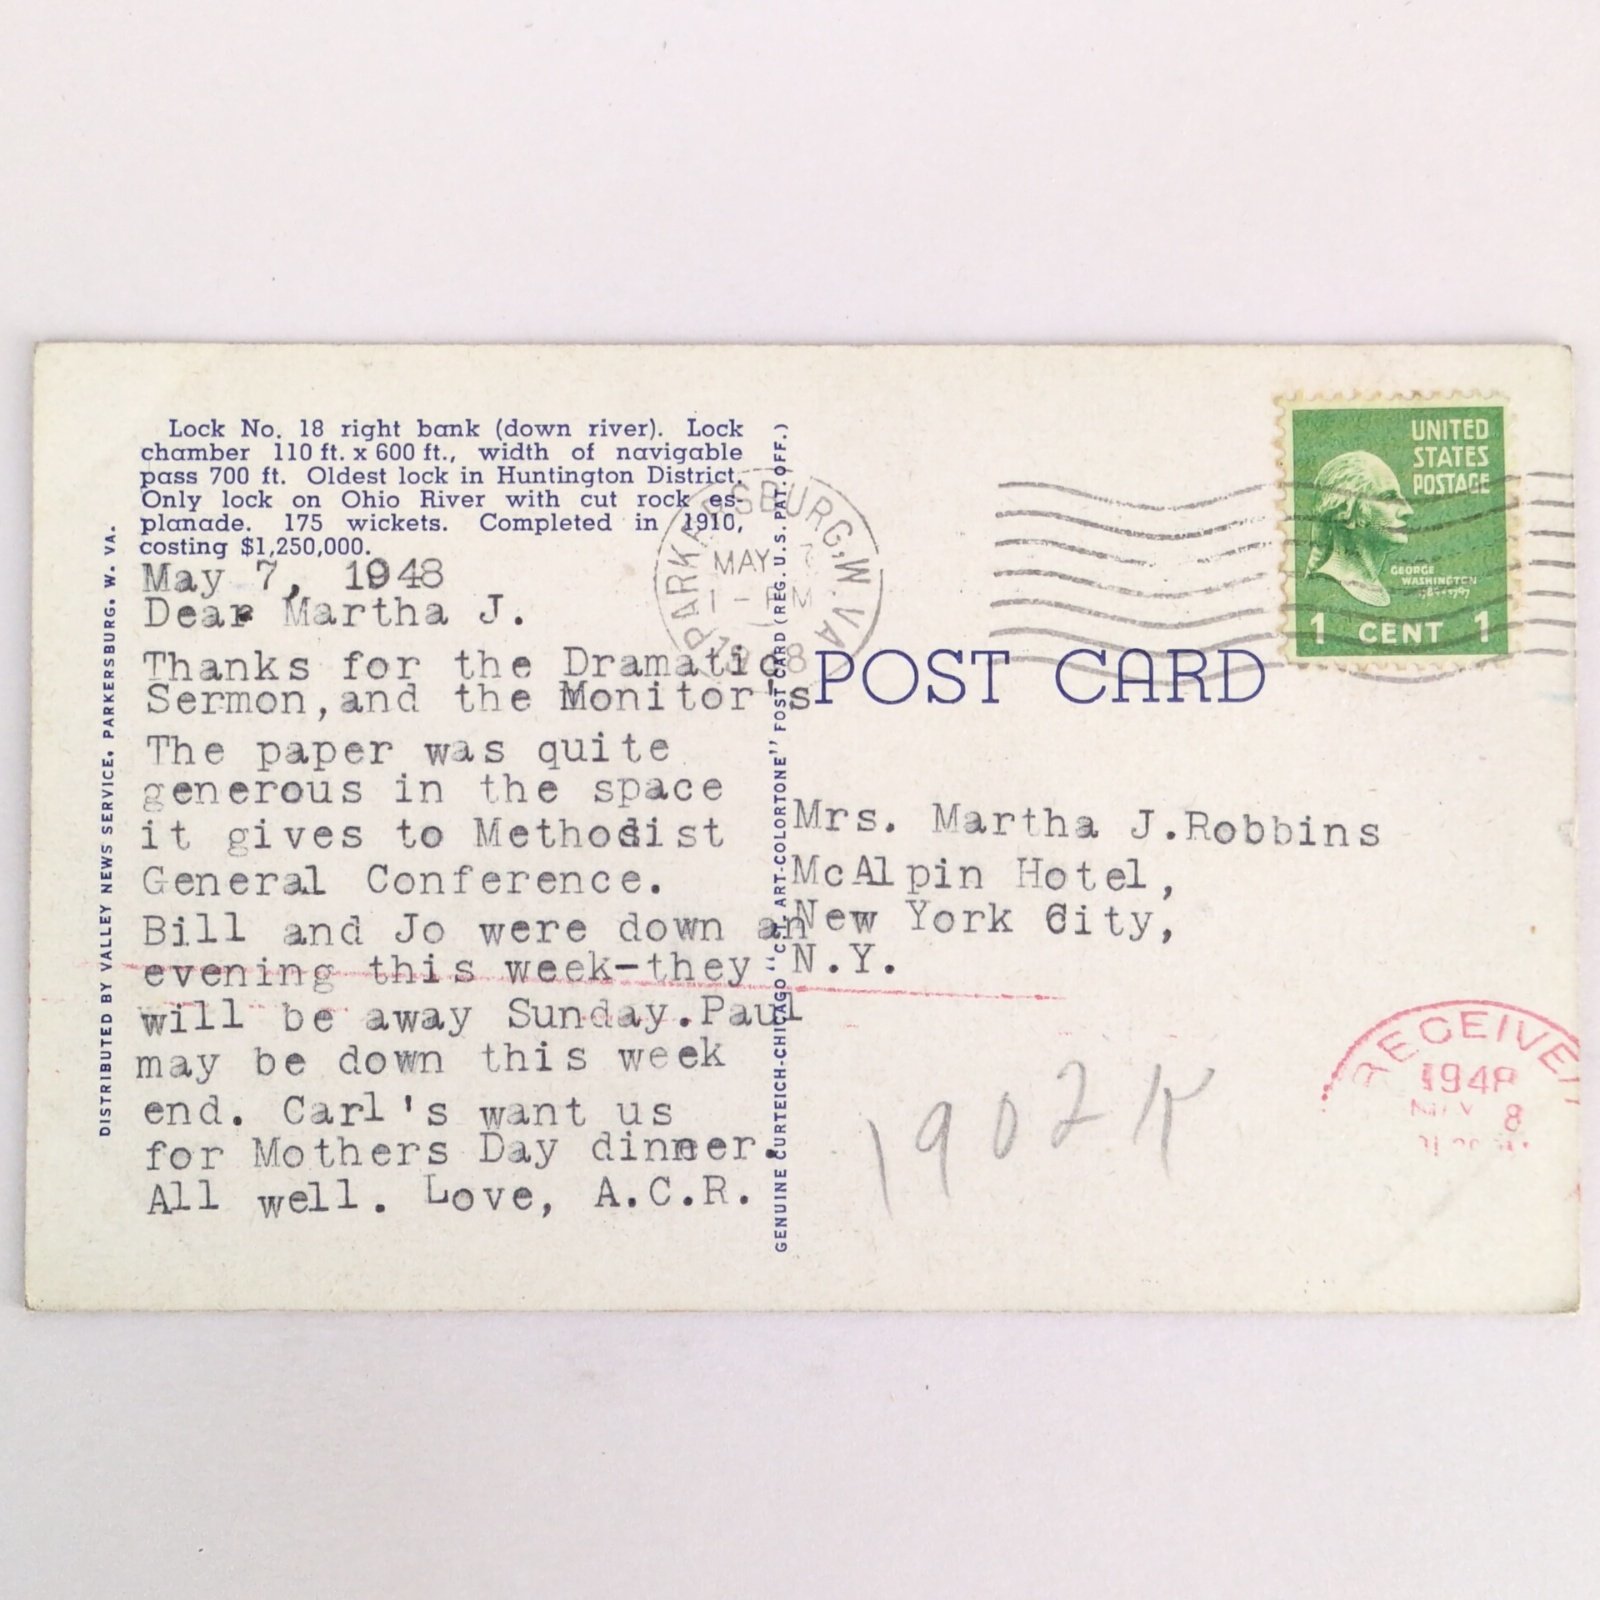 Lock No. 18 right bank (down river). Lock
chamber 110 ft. x 600 ft., width of navigable
pass 700 ft. Oldest lock in Huntington District.
Only lock on Ohio River with cut rock es-
planade. 175 wickets. Completed in 1910,
costing $1,250,000.
May 7, 1948
Dear Martha J.
Thanks for the Dramatic
Sermon,and the Monitor's
The paper was quite
generous in the space
it gives to Methodist
General Conference.
Bill and Jo were down an
evening this week-they
will be away Sunday.Paul
may be down this week
end. Carl's want us
for Mothers Day dinner.
All well. Love, A.C.R.
DISTRIBUTED BY VALLEY NEWS SERVICE, PARKERSBURG, W. VA.
GENUINE CURTEICH-CHICAGO "C.T. ART-COLORTONE" POST CARD (REG. U.S. PAT. OFF.)
PARKERSBURG, W. VA.
MAY 7
1 - PM
1948
UNITED
STATES
POSTAGE
GEORGE
WASHINGTON
1 CENT 1
POST CARD
Mrs. Martha J.Robbins
McAlpin Hotel,
New York City,
N.Y.
1902
RECEIVED
1948
MAY 8